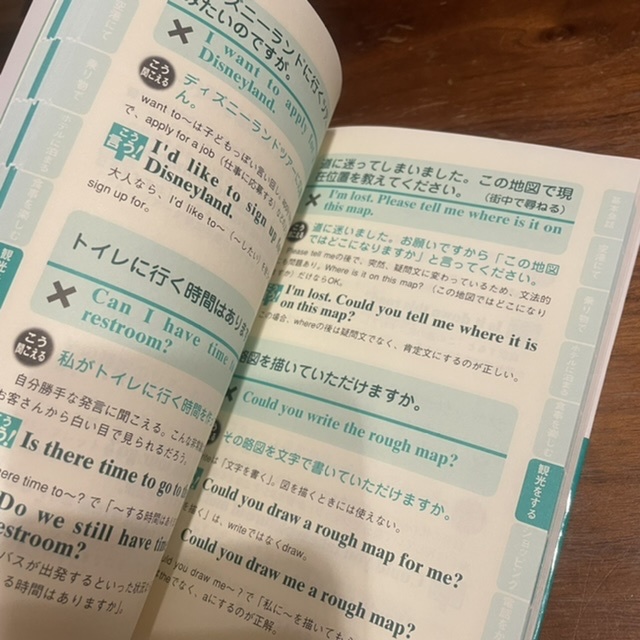 ディズニーランドに行くツ
みたいのですが。
I want to apply
Disneyland.
こう
聞こえる
ディズニーランドツアー
ん。
want to〜は子どもっぽい言い回し
で、apply for a job（仕事に応募する）
こう
言う!
I'd like to sign up
Disneyland.
大人なら、I'd like to〜（〜したい）
sign up for.
トイレに行く時間はあり
Can I have time
restroom?
こう
聞こえる
私がトイレに行く時間を
自分勝手な発言に聞こえる。こんな
お客さんから白い目で見られるだろう。
Is there time to go to
here time to〜? で「〜する時間は
Do we still have tim
restroom?
バスが出発するといった状況
る時間はありますか」
観光を
道に迷ってしまいました。この地図で現
在位置を教えてください。 （街中で尋ねる）
I'm lost. Please tell me where is it on
this map.
道に迷いました。お願いですから「この地図
ではどこになりますか」と言ってください。
Please tell meの後で、突然、疑問文に変わっているため、文法的
問題あり。Where is it on this map? （この地図ではどこになり
すか）だけならOK。
I'm lost. Could you tell me where it is
on this map?
この場合、whereの後は疑問文でなく、肯定文にするのが正しい。
略図を描いていただけますか。
Could you write the rough map?
その略図を文字で書いていただけますか。
は「文字を書く」。図を描くときには使えない。
Could you draw a rough map for me?
描く」は、writeではなくdraw。
Could you draw me a rough map?
ould you draw me〜? で「私に〜を描いても
theでなく、aにするのが正解。
観光をする
ショッピング